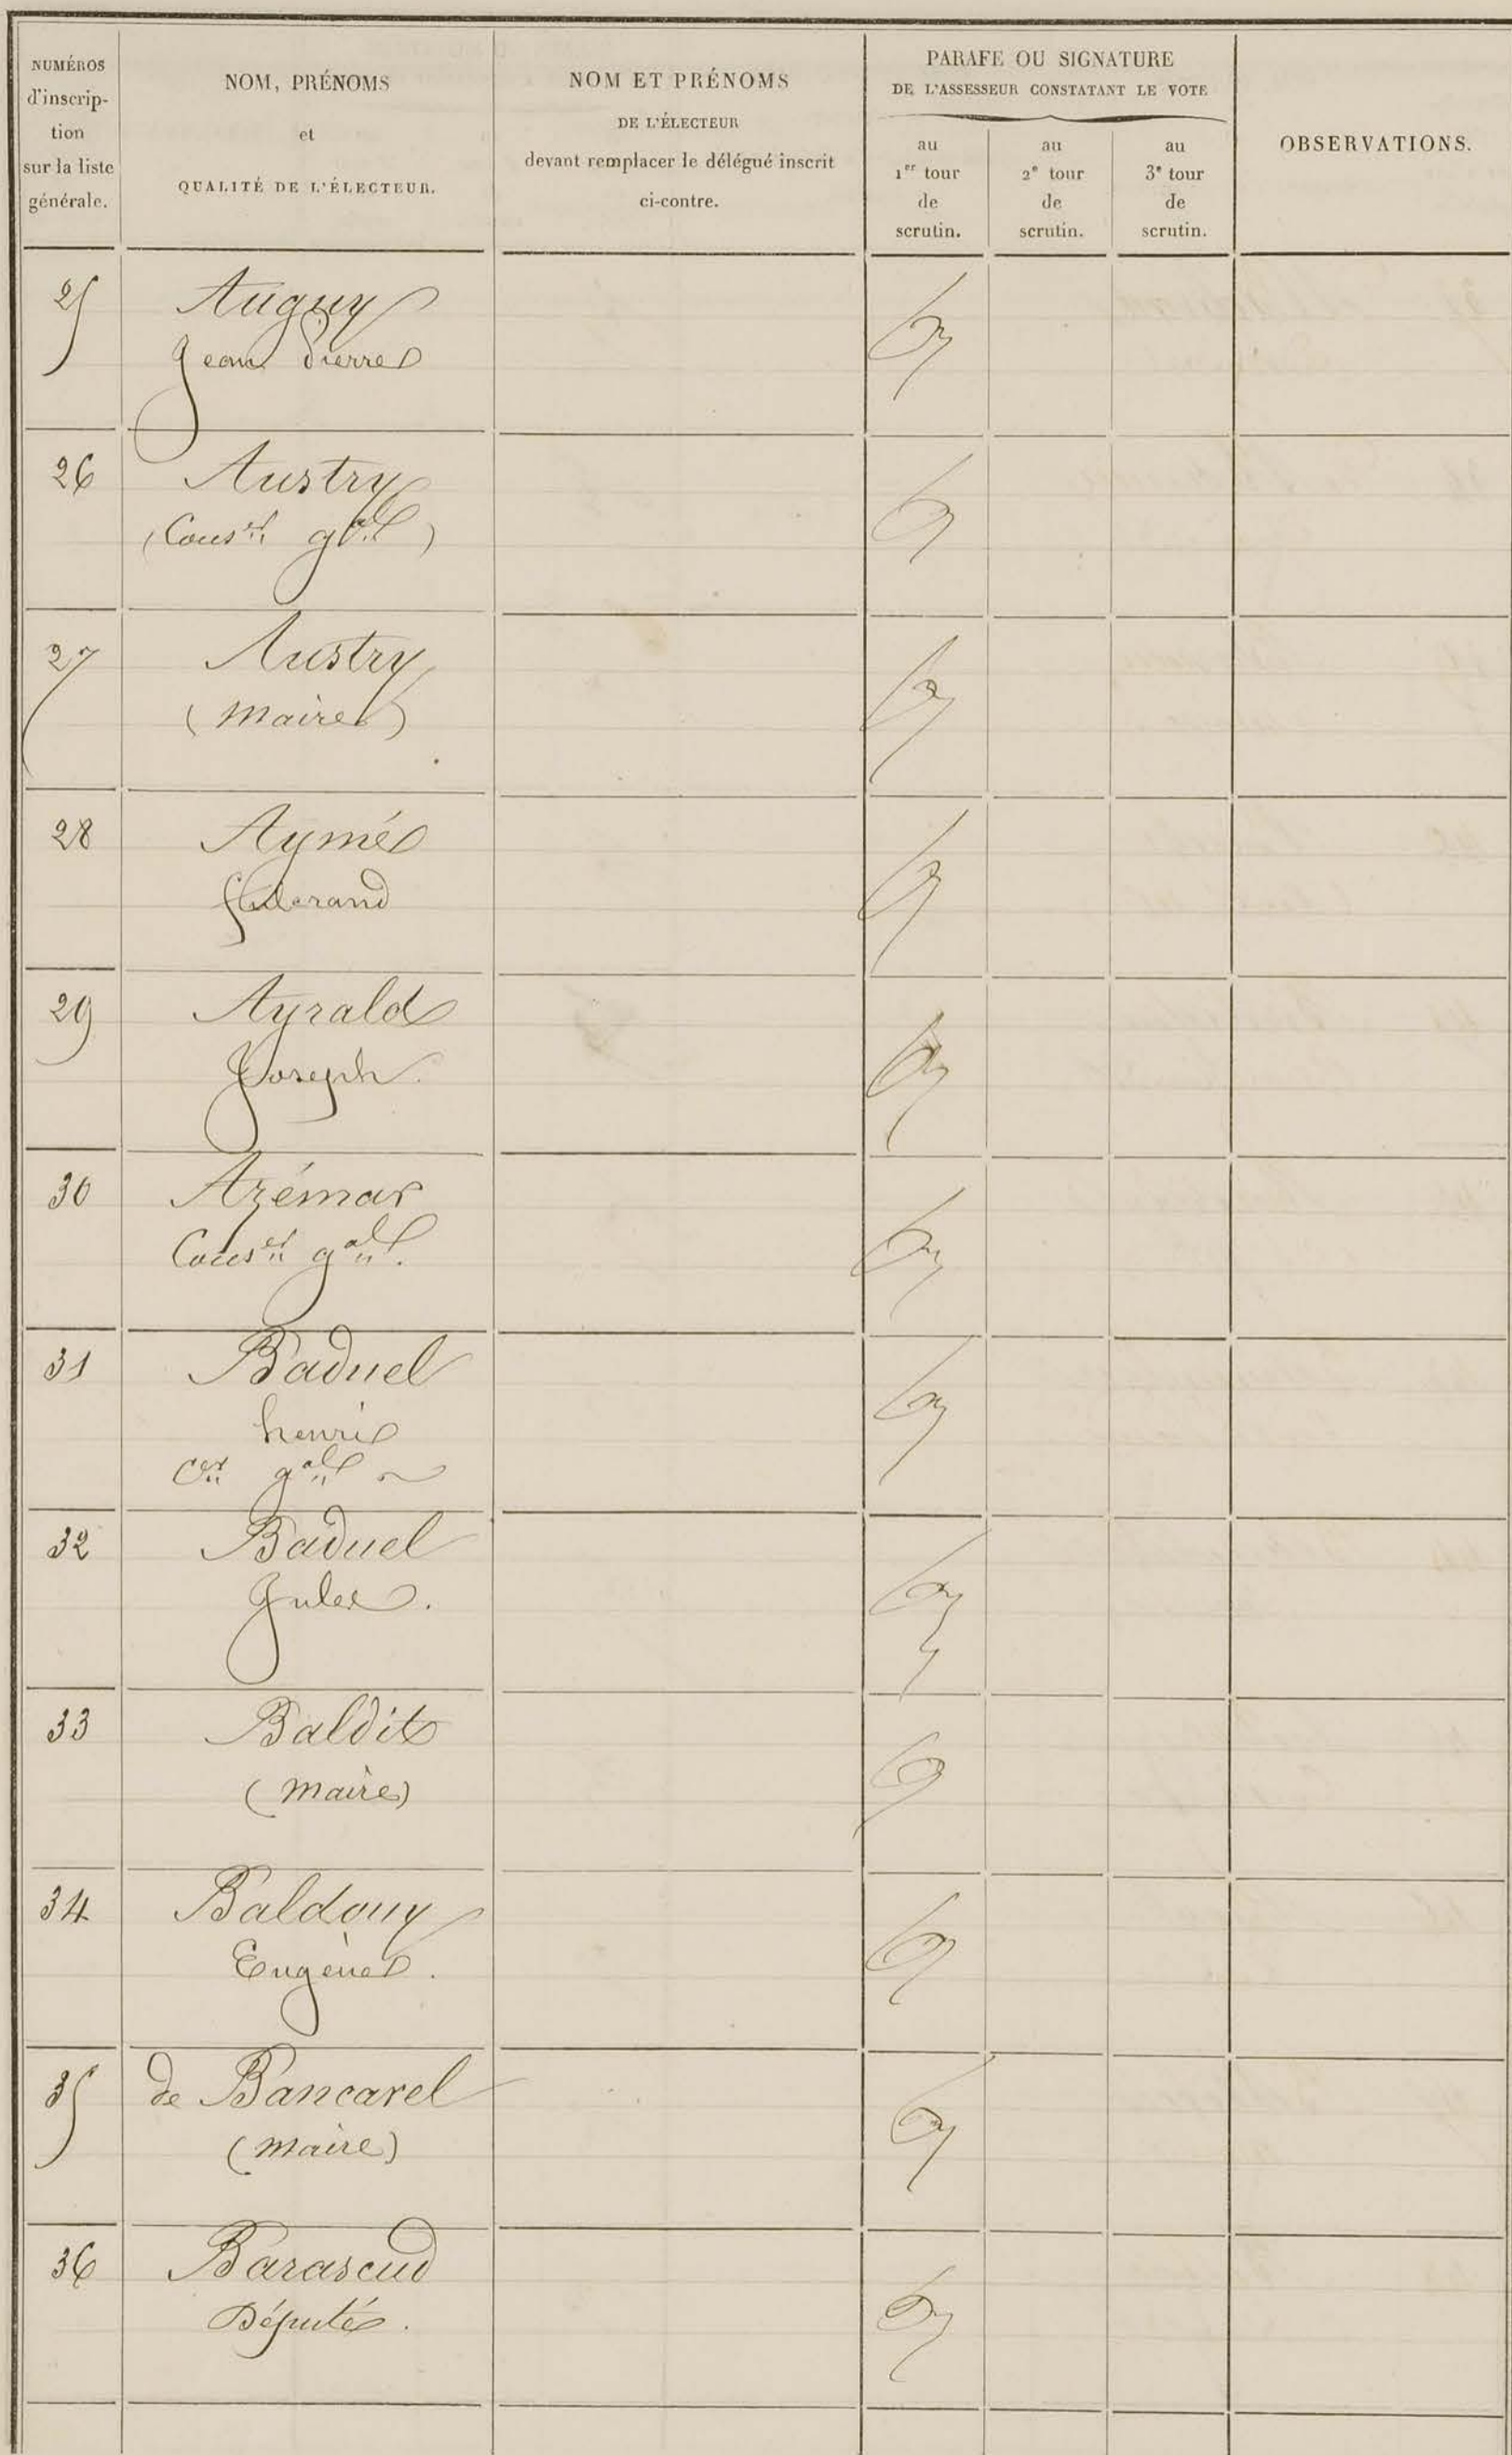 NUMÉROS
d'inscrip-
tion
sur la liste
générale.
NOM, PRÉNOMS
et
QUALITÉ DE L'ÉLECTEUR.
NOM ET PRÉNOMS
DE L'ÉLECTEUR
devant remplacer le délégué inscrit
ci-contre.
PARAFE OU SIGNATURE
DE L'ASSESSEUR CONSTATANT LE VOTE
au
1er tour
de
scrutin.
au
2e tour
de
scrutin.
au
3e tour
de
scrutin.
OBSERVATIONS.
25 Auguy
Jean Pierre
26 Austry
(Conser gal)
27 Austry
(Maire)
28 Aymé
29 Ayrald
Joseph.
30 Azémar
Conser gal.
31 Baduel
henri
Cer gal
32 Baduel
Jules.
33 Baldit
(Maire)
34 Baldouy
Eugène.
35 de Bancarel
(Maire)
36 Barascud
Député.